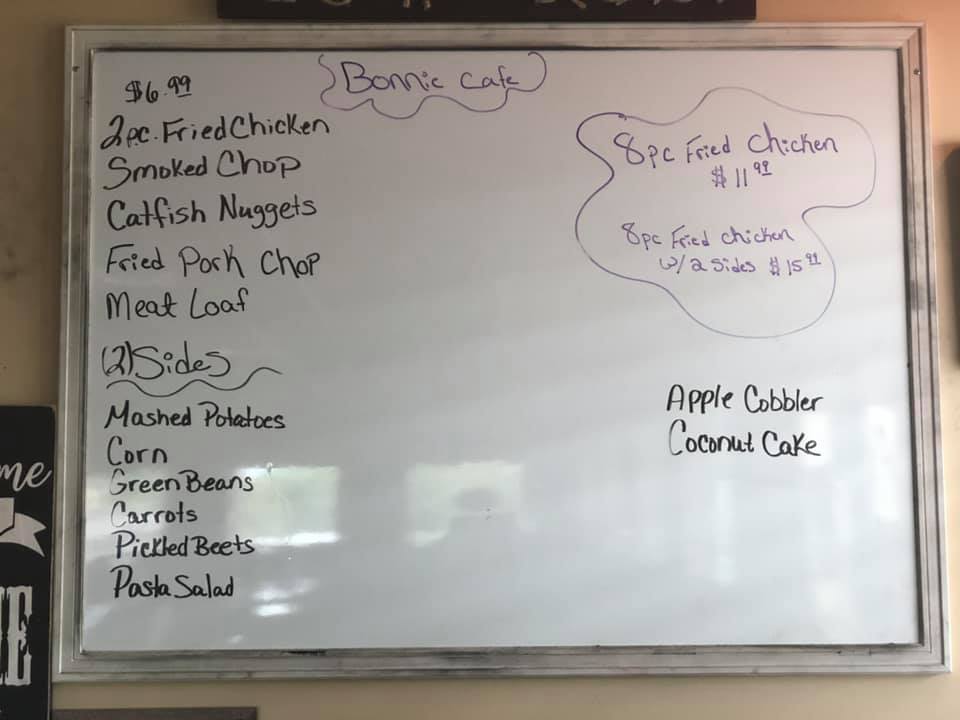 Bonnie Cafe
$6.99
2pc. Fried Chicken
Smoked Chop
Catfish Nuggets
Fried Pork Chop
Meat Loaf
(2) Sides
Mashed Potatoes
Corn
Green Beans
Carrots
Pickled Beets
Pasta Salad
8pc Fried Chicken
$11.99
8pc Fried Chicken
w/2 Sides $15.99
Apple Cobbler
Coconut Cake
me